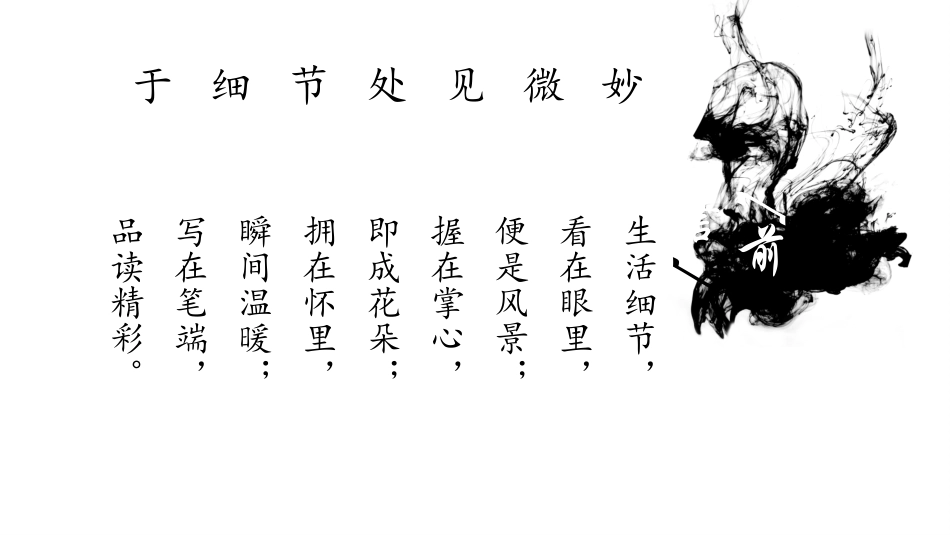 于细节处见微妙
生活细节，
看在眼里，
便是风景；
握在掌心，
即成花朵；
拥在怀里，
瞬间温暖；
写在笔端，
品读精彩。
前